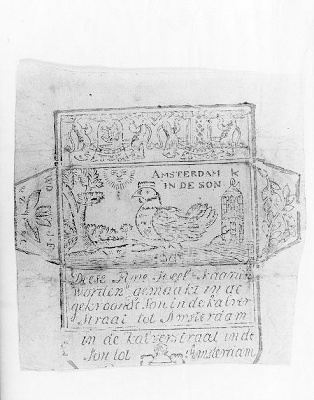 AMSTERDAM
IN DE SON
Diese Fijne
worden gemaakt in de
gekroonde Son in de kalver
Straat tot Amsterdam
in de kalverstraat in de
Son tot Amsterdam